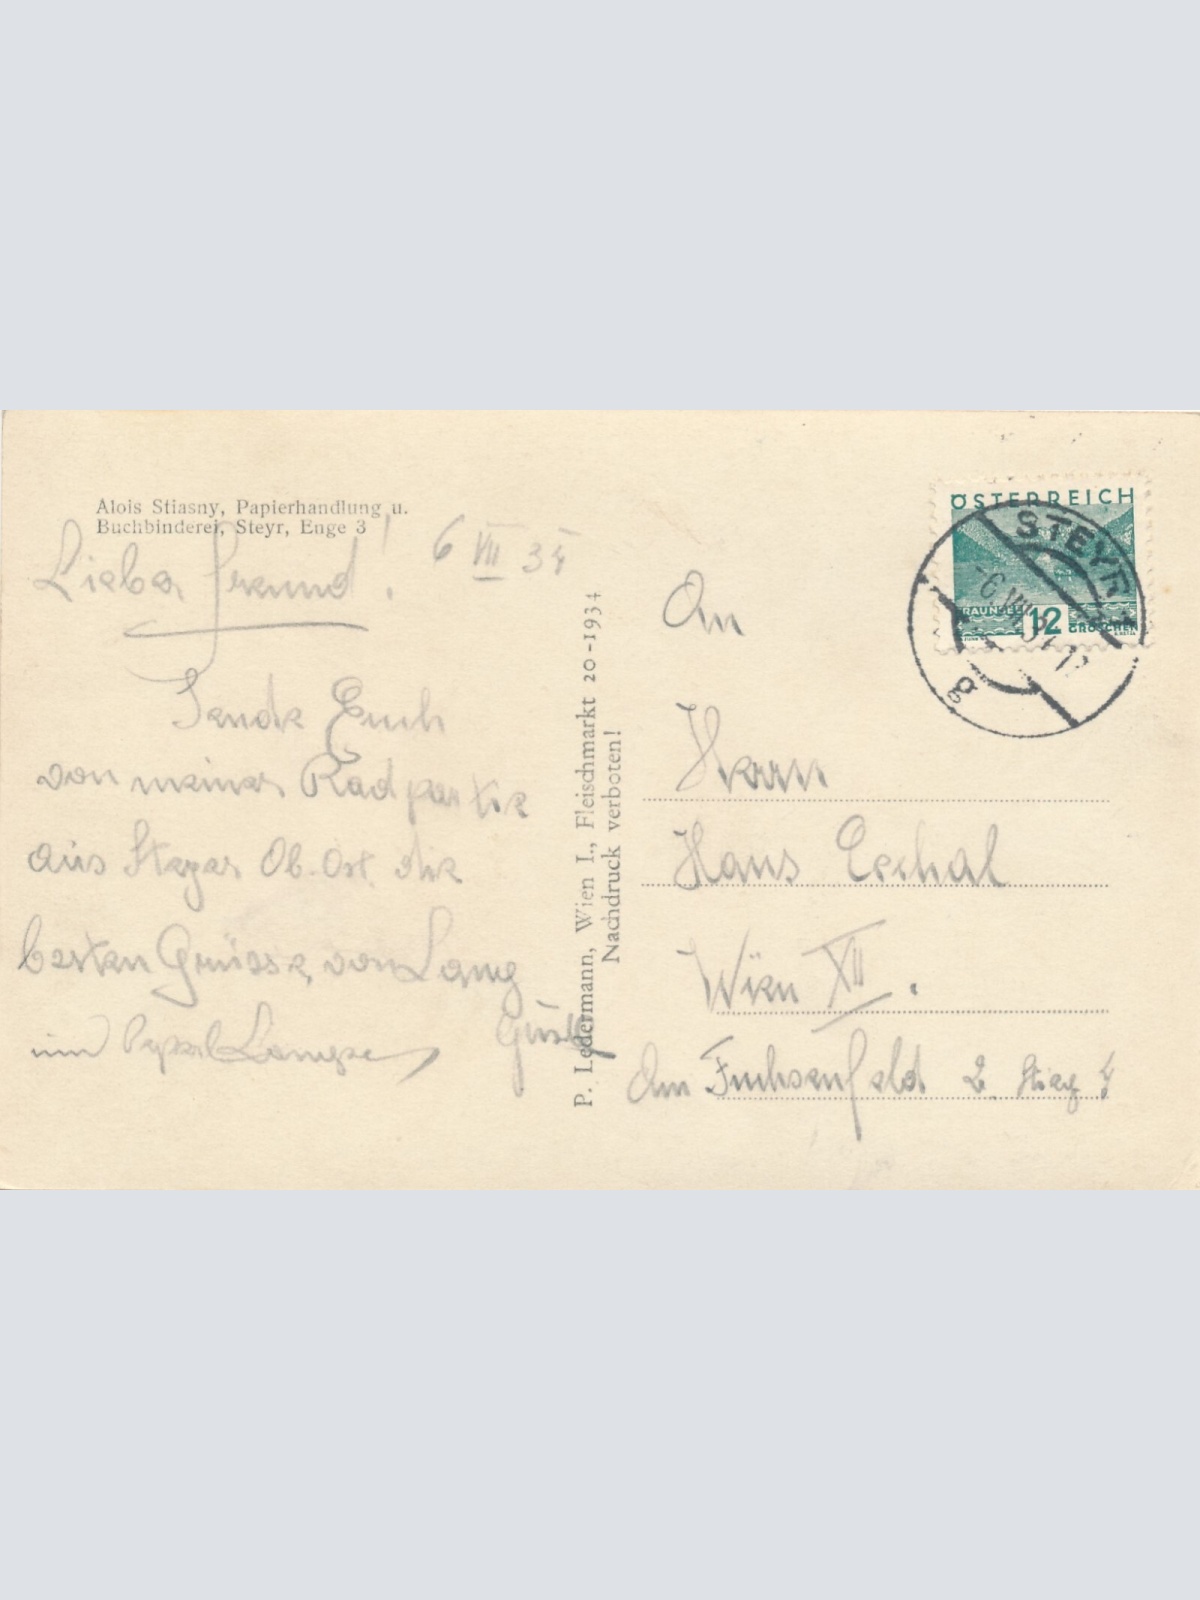 Alois Stiasny, Papierhandlung u.
Buchbinderei, Steyr, Enge 3
6 VIII 34
Lieber Freund!
Sende Euch
von meiner Radpartie
aus Steyer Ob. Öst. die
besten Grüsse, von Lang
Gustl
und
P. Ledermann, Wien I., Fleischmarkt 20-1934
Nachdruck verboten!
ÖSTERREICH
TRAUNSEE 12 GROSCHEN
STEYR
g
An
Herrn
Hans
Wien XII.
Am Fuchsenfeld 2. Stieg 4